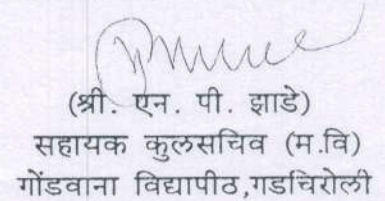 (श्री. एन. पी. झाडे)
सहायक कुलसचिव (म.वि)
गोंडवाना विद्यापीठ,गडचिरोली